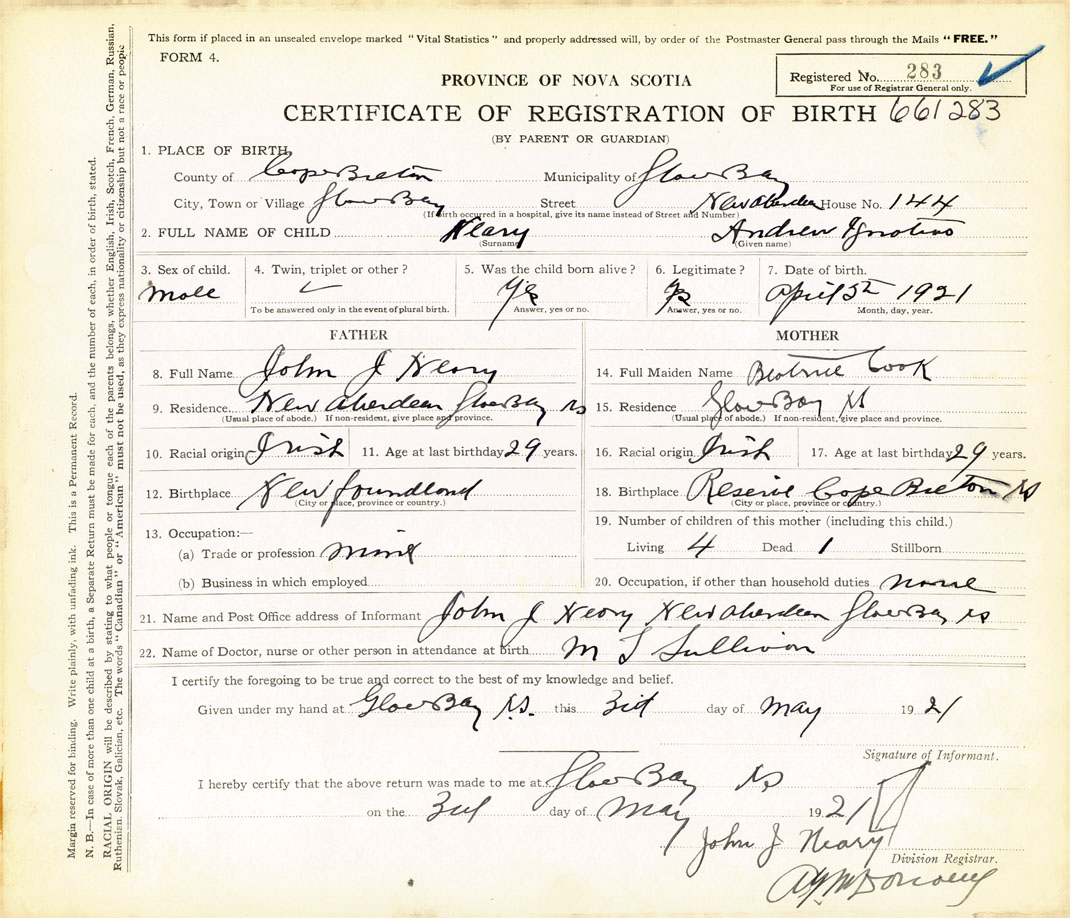 This form if placed in an unsealed envelope marked "Vital Statistics" and properly addressed will, by order of the Postmaster General pass through the Mails "FREE."
FORM 4.
Registered No. 283
For use of Registrar General only.
PROVINCE OF NOVA SCOTIA
CERTIFICATE OF REGISTRATION OF BIRTH 661283
(BY PARENT OR GUARDIAN)
1. PLACE OF BIRTH,
County of Cape Breton Municipality of Glace Bay
City, Town or Village Glace Bay Street New Aberdeen House No. 144
(If birth occurred in a hospital, give its name instead of Street and Number)
2. FULL NAME OF CHILD Neary Andrew Ignatius
(Surname) (Given name)
3. Sex of child. 4. Twin, triplet or other? 5. Was the child born alive? 6. Legitimate? 7. Date of birth.
Male Yes Yes April 5th 1921
To be answered only in the event of plural birth. Answer, yes or no. Answer, yes or no. Month, day, year.
FATHER
8. Full Name John J Neary
9. Residence New Aberdeen Glace Bay NS
(Usual place of abode.) If non-resident, give place and province.
10. Racial origin Irish 11. Age at last birthday 29 years.
12. Birthplace Newfoundland
(City or place, province or country.)
13. Occupation:—
(a) Trade or profession Miner
(b) Business in which employed
MOTHER
14. Full Maiden Name Beatrice Cook
15. Residence Glace Bay NS
(Usual place of abode.) If non-resident, give place and province.
16. Racial origin Irish 17. Age at last birthday 29 years.
18. Birthplace Reserve Cape Breton NS
(City or place, province or country.)
19. Number of children of this mother (including this child.)
Living 4 Dead 1 Stillborn
20. Occupation, if other than household duties none
21. Name and Post Office address of Informant John J Neary New Aberdeen Glace Bay NS
22. Name of Doctor, nurse or other person in attendance at birth M T Sullivan
I certify the foregoing to be true and correct to the best of my knowledge and belief.
Given under my hand at Glace Bay N.S. this 3rd day of May 1921
Signature of Informant.
I hereby certify that the above return was made to me at Glace Bay NS
on the 3rd day of May 1921
John J Neary
Division Registrar.
Margin reserved for binding. Write plainly, with unfading ink. This is a Permanent Record.
N. B.—In case of more than one child at a birth, a Separate Return must be made for each, and the number of each, in order of birth, stated.
RACIAL ORIGIN will be described by stating to what people or tongue each of the parents belongs, whether English, Irish, Scotch, French, German, Russian,
Ruthenian, Slovak, Galician, etc. The words "Canadian" or "American" must not be used, as they express nationality or citizenship but not a race or people